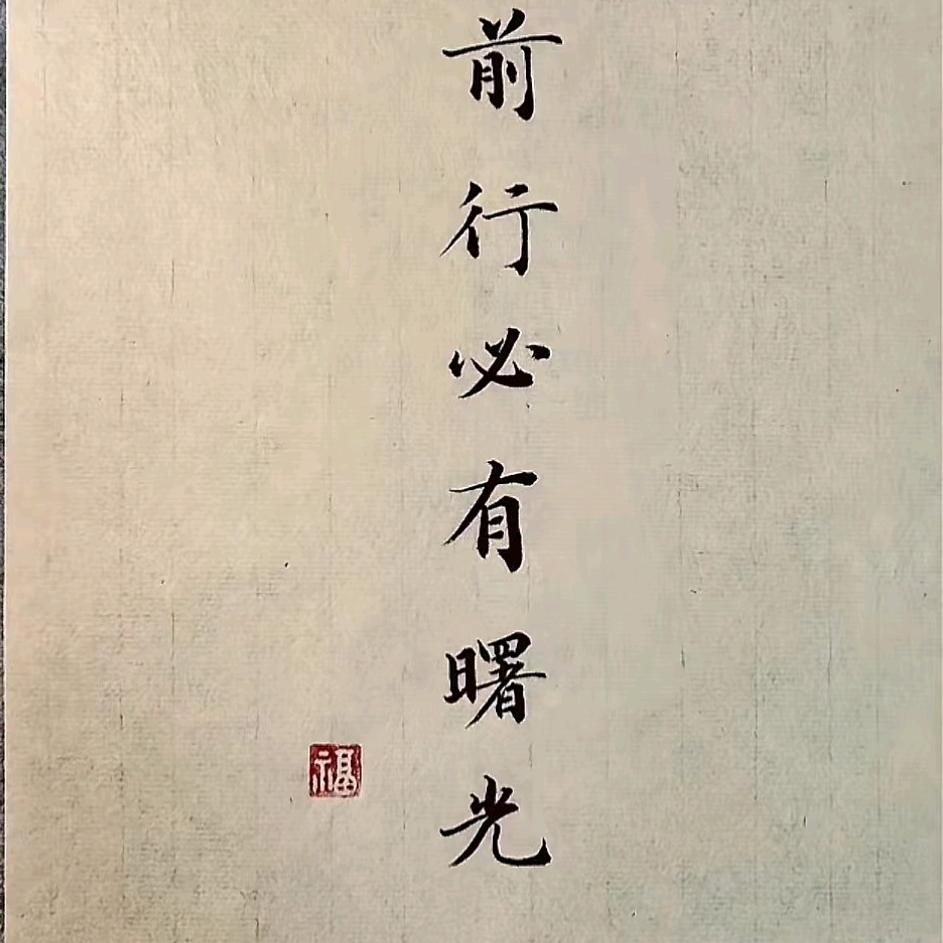 前行必有曙光
福